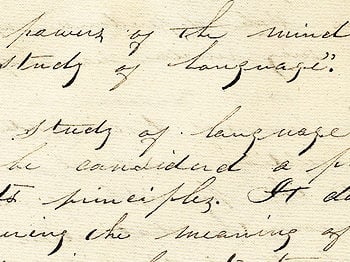 powers of the mind
study of language".
study of language
be considered a p
ts principles. It do
uring the meaning of